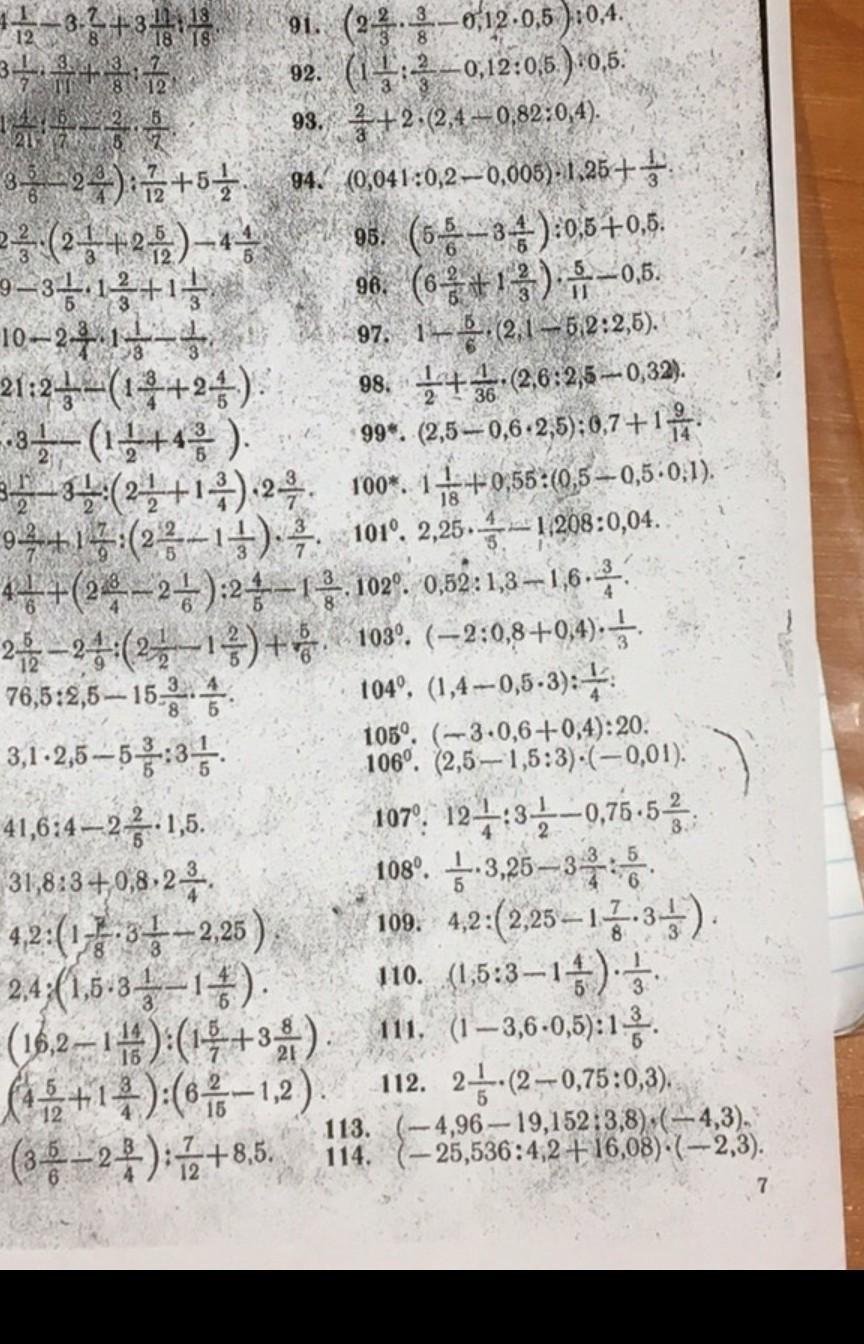 4 1/12 − 3 7/8 + 3 11/18 : 13/18.
3 1/7 · 3/11 + 3/8 : 7/12.
1 4/21 : 5/7 − 2/5 · 5/7.
3 5/6 − 2 3/4) : 7/12 + 5 1/2.
2 2/3 · (2 1/3 + 2 5/12) − 4 4/5
9 − 3 1/5 · 1 2/3 + 1 1/3.
10 − 2 3/4 · 1 1/3 − 1/3.
21 : 2 1/3 − (1 3/4 + 2 4/5).
· 3 1/2 − (1 1/2 + 4 3/5).
8 1/2 − 3 1/2 : (2 1/2 + 1 3/4) · 2 3/7.
9 2/7 + 1 7/9 : (2 2/5 − 1 1/3) · 3/7.
4 1/6 + (2 3/4 − 2 1/6) : 2 4/5 − 1 3/8.
2 5/12 − 2 4/9 : (2 1/2 − 1 2/5) + 5/6.
76,5 : 2,5 − 15 3/8 · 4/5.
3,1 · 2,5 − 5 3/5 : 3 1/5.
41,6 : 4 − 2 2/5 · 1,5.
31,8 : 3 + 0,8 · 2 3/4.
4,2 : (1 7/8 · 3 1/3 − 2,25).
2,4 : (1,5 · 3 1/3 − 1 4/5).
(16,2 − 1 14/15) : (1 5/7 + 3 8/21).
(4 5/12 + 1 3/4) : (6 2/15 − 1,2).
(3 5/6 − 2 3/4) : 7/12 + 8,5.
91. (2 2/3 · 3/8 − 0,12 · 0,5) : 0,4.
92. (1 1/3 : 2/3 − 0,12 : 0,5) : 0,5.
93. 2/3 + 2 · (2,4 − 0,82 : 0,4).
94. (0,041 : 0,2 − 0,005) · 1,25 + 1/3.
95. (5 5/6 − 3 4/5) : 0,5 + 0,5.
96. (6 2/5 + 1 2/3) · 5/11 − 0,5.
97. 1 − 5/6 · (2,1 − 5,2 : 2,5).
98. 1/2 + 1/36 · (2,6 : 2,5 − 0,32).
99*. (2,5 − 0,6 · 2,5) : 0,7 + 1 9/14.
100*. 1 1/18 + 0,55 : (0,5 − 0,5 · 0,1).
101⁰. 2,25 · 4/5 − 1,208 : 0,04.
102⁰. 0,52 : 1,3 − 1,6 · 3/4.
103⁰. (−2 : 0,8 + 0,4) · 1/3.
104⁰. (1,4 − 0,5 · 3) : 1/4.
105⁰. (−3 · 0,6 + 0,4) : 20.
106⁰. (2,5 − 1,5 : 3) · (−0,01).
107⁰. 12 1/4 : 3 1/2 − 0,75 · 5 2/3.
108⁰. 1/5 · 3,25 − 3 3/4 : 5/6.
109. 4,2 : (2,25 − 1 7/8 · 3 1/3).
110. (1,5 : 3 − 1 4/5) · 1/3.
111. (1 − 3,6 · 0,5) : 1 3/5.
112. 2 1/5 · (2 − 0,75 : 0,3).
113. (−4,96 − 19,152 : 3,8) · (−4,3).
114. (−25,536 : 4,2 + 16,08) · (−2,3).
7